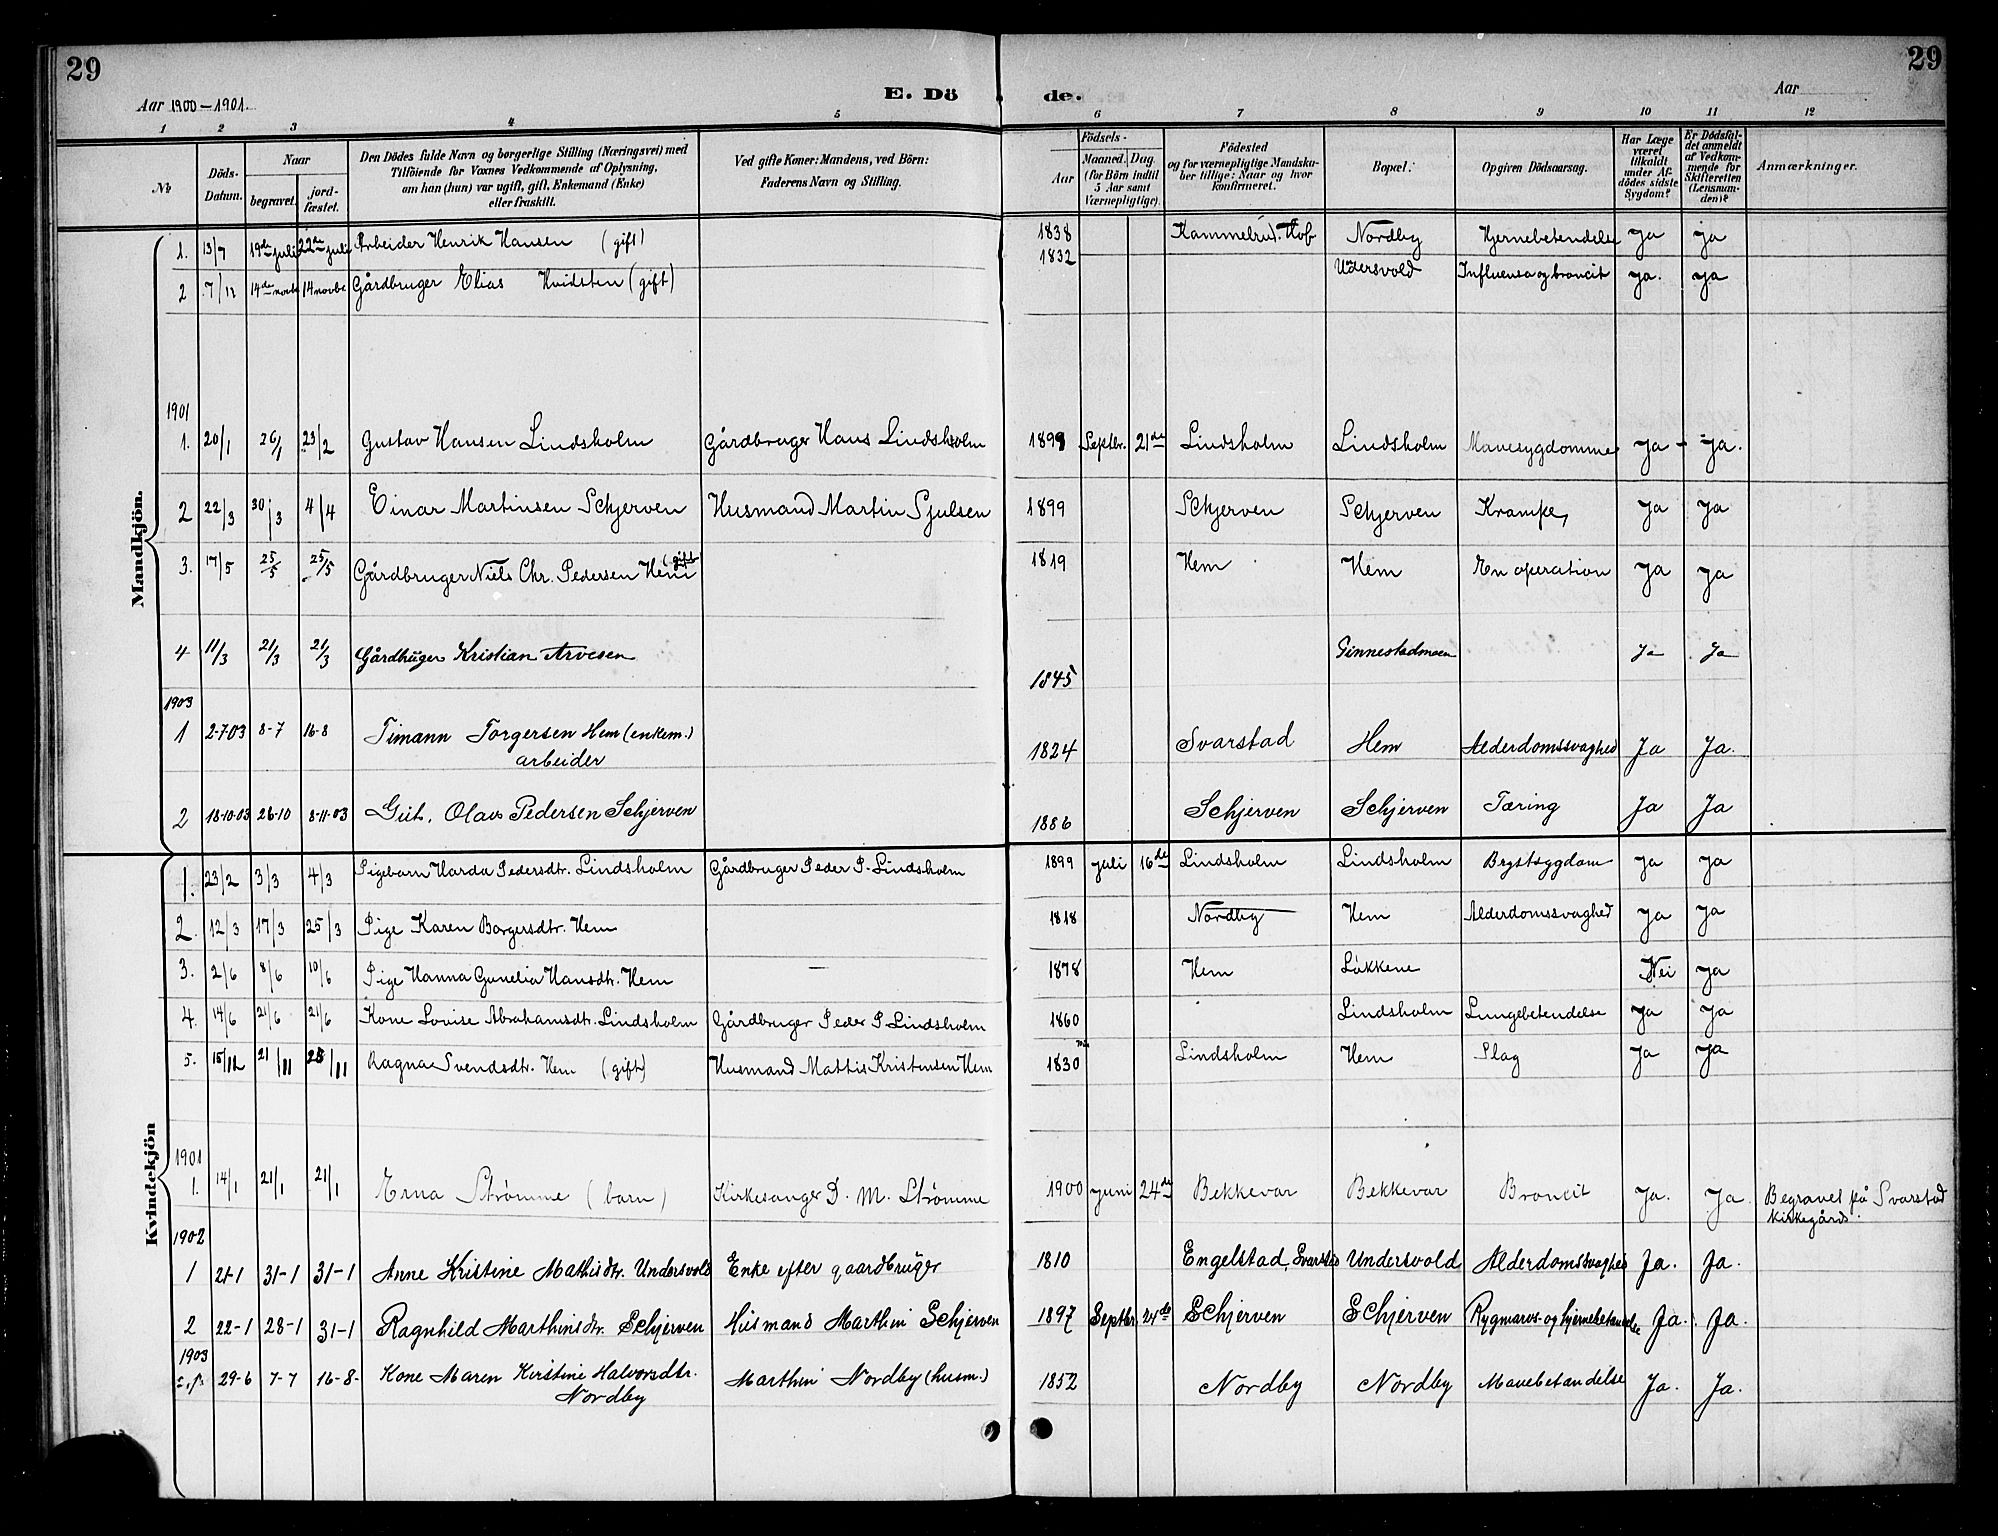 29
29
Aar 1900-1901.
E. Dö
de.
Aar
1 2 3 4 5 6 7 8 9 10 11 12
No
Döds-Datum.
Naar
begravet.
jord-fæstet.
Den Dödes fulde Navn og borgerlige Stilling (Næringsvei) med
Tilföiende for Voxnes Vedkommende af Oplysning,
om han (hun) var ugift, gift, Enkemand (Enke)
eller fraskilt.
Ved gifte Koner: Mandens, ved Börn:
Faderens Navn og Stilling.
Födsels-
Aar
Maaned. Dag.
(for Börn indtil
5 Aar samt
Værnepligtige).
Födested
og for værnepligtige Mandska-
ber tillige: Naar og hvor
konfirmeret.
Bopæl.
Opgiven Dödsaarsag.
Har Læge
været
tilkaldt
under Af-
dödes sidste
Sygdom?
Er Dödsfal-
det anmeldt
af Vedkom-
mende for
Skifteretten
(Lensman-
den)?
Anmærkninger.
Mandkjön.
1. 13/7 19de juli 22de juli Arbeider Henrik Hansen (gift) 1838 Kammelrud. Hof Nordby Hjernebetendelse Ja Ja
2 7/12 14de novbr 14 novbr Gårdbruger Elias Hvidsten (gift) 1832 Udersvold Influensa og broncit Ja. Ja
1901
1. 20/1 26/1 23/2 Gustav Hansen Lindsholm Gårdbruger Hans Lindsholm 1899 Septbr. 21de Lindsholm Lindsholm Mavesygdomme Ja - Ja.
2 22/3 30/3 4/4 Einar Martinsen Schjerven Husmand Martin Sjulsen 1899 Schjerven Schjerven Krampe, Ja Ja
3. 17/5 25/5 25/5 Gårdbruger Niels Chr. Pedersen Hem (gift) 1819 Hem Hem En operation Ja Ja
4 11/3 21/3 21/3 Gårdbrüger Kristian Arvesen 1845 Ginnestadmoen Ja Ja
1903
1 2-7-03 8-7 16-8 Timann Torgersen Hem (enkem.) 1824 Svarstad Hem Alderdomssvaghed Ja Ja.
arbeider
2 18-10-03 26-10 8-11-03 Gut. Olavs Pedersen Schjerven 1886 Schjerven Schjerven Tæring Ja Ja
Kvindekjön
1. 23/2 3/3 4/3 Pigebarn Harda Pedersdtr. Lindsholm Gårdbruger Peder P. Lindsholm 1899 Juli 16de Lindsholm Lindsholm Brystsygdom Ja Ja
2. 12/3 17/3 25/3 Pige Karen Borgersdtr. Hem 1818 Nordby Hem Alderdomssvaghed Ja Ja
3. 2/6 8/6 10/6 Pige Hanna Gunelia Hansdtr. Hem — 1878 Hem Løkkene Nei Ja
4. 14/6 21/6 21/6 Kone Lovise Abrahamsdtr. Lindsholm Gårdbruger Peder P. Lindsholm 1860 Lindsholm Lungebetendelse Ja Ja
5. 15/11 21/11 25/11 Ragna Svendsdtr. Hem (gift) Husmand Mattis Kristensen Hem 1830 Lindsholm Hem Slag Ja Ja
1901
1. 14/1 21/1 21/1 Erna Strømme (barn) Kirkesanger D. M. Strømme 1900 Juni 24de Bekkevar Bekkevar Broncit Ja. Ja Begravet på Svarstad
kirkegård.
1902
1 21-1 31-1 31-1 Anne Kristine Mathisdtr. Undersvold Enke efter gaardbrüger 1810 Engelstad, Svarstad Undersvold Alderdomssvaghed Ja. Ja.
2 22-1 28-1 31-1 Ragnhild Marthinsdtr. Schjerven Hüsmand Marthin Schjerven 1897 Septbr 24de Schjerven Schjerven Rygmarvs- og hjernebetændelse Ja. Ja.
1903
29-6 7-7 16-8- Kone Maren Kirstine Halvorsdtr. Marthin Nordby (husm.) 1852 Nordby Nordby Mavebetændelse Ja. Ja.
Nordby